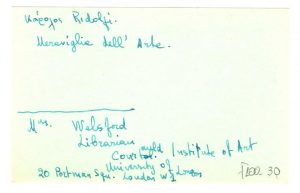 Κάρολος Ridolfi.
Meraviglie dell' Arte.
Mrs. Welsford
Librarian
Courtauld Institute of Art
University of
20 Portman Squ. London W1
30